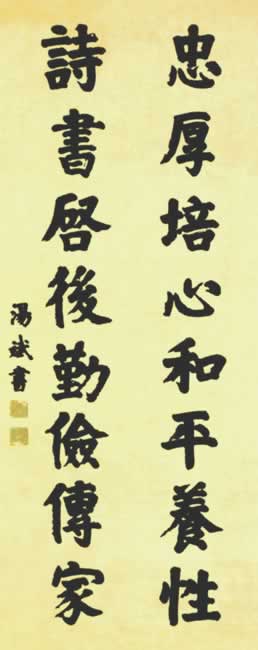 忠厚培心和平養性
詩書啓後勤儉傳家
湯斌書